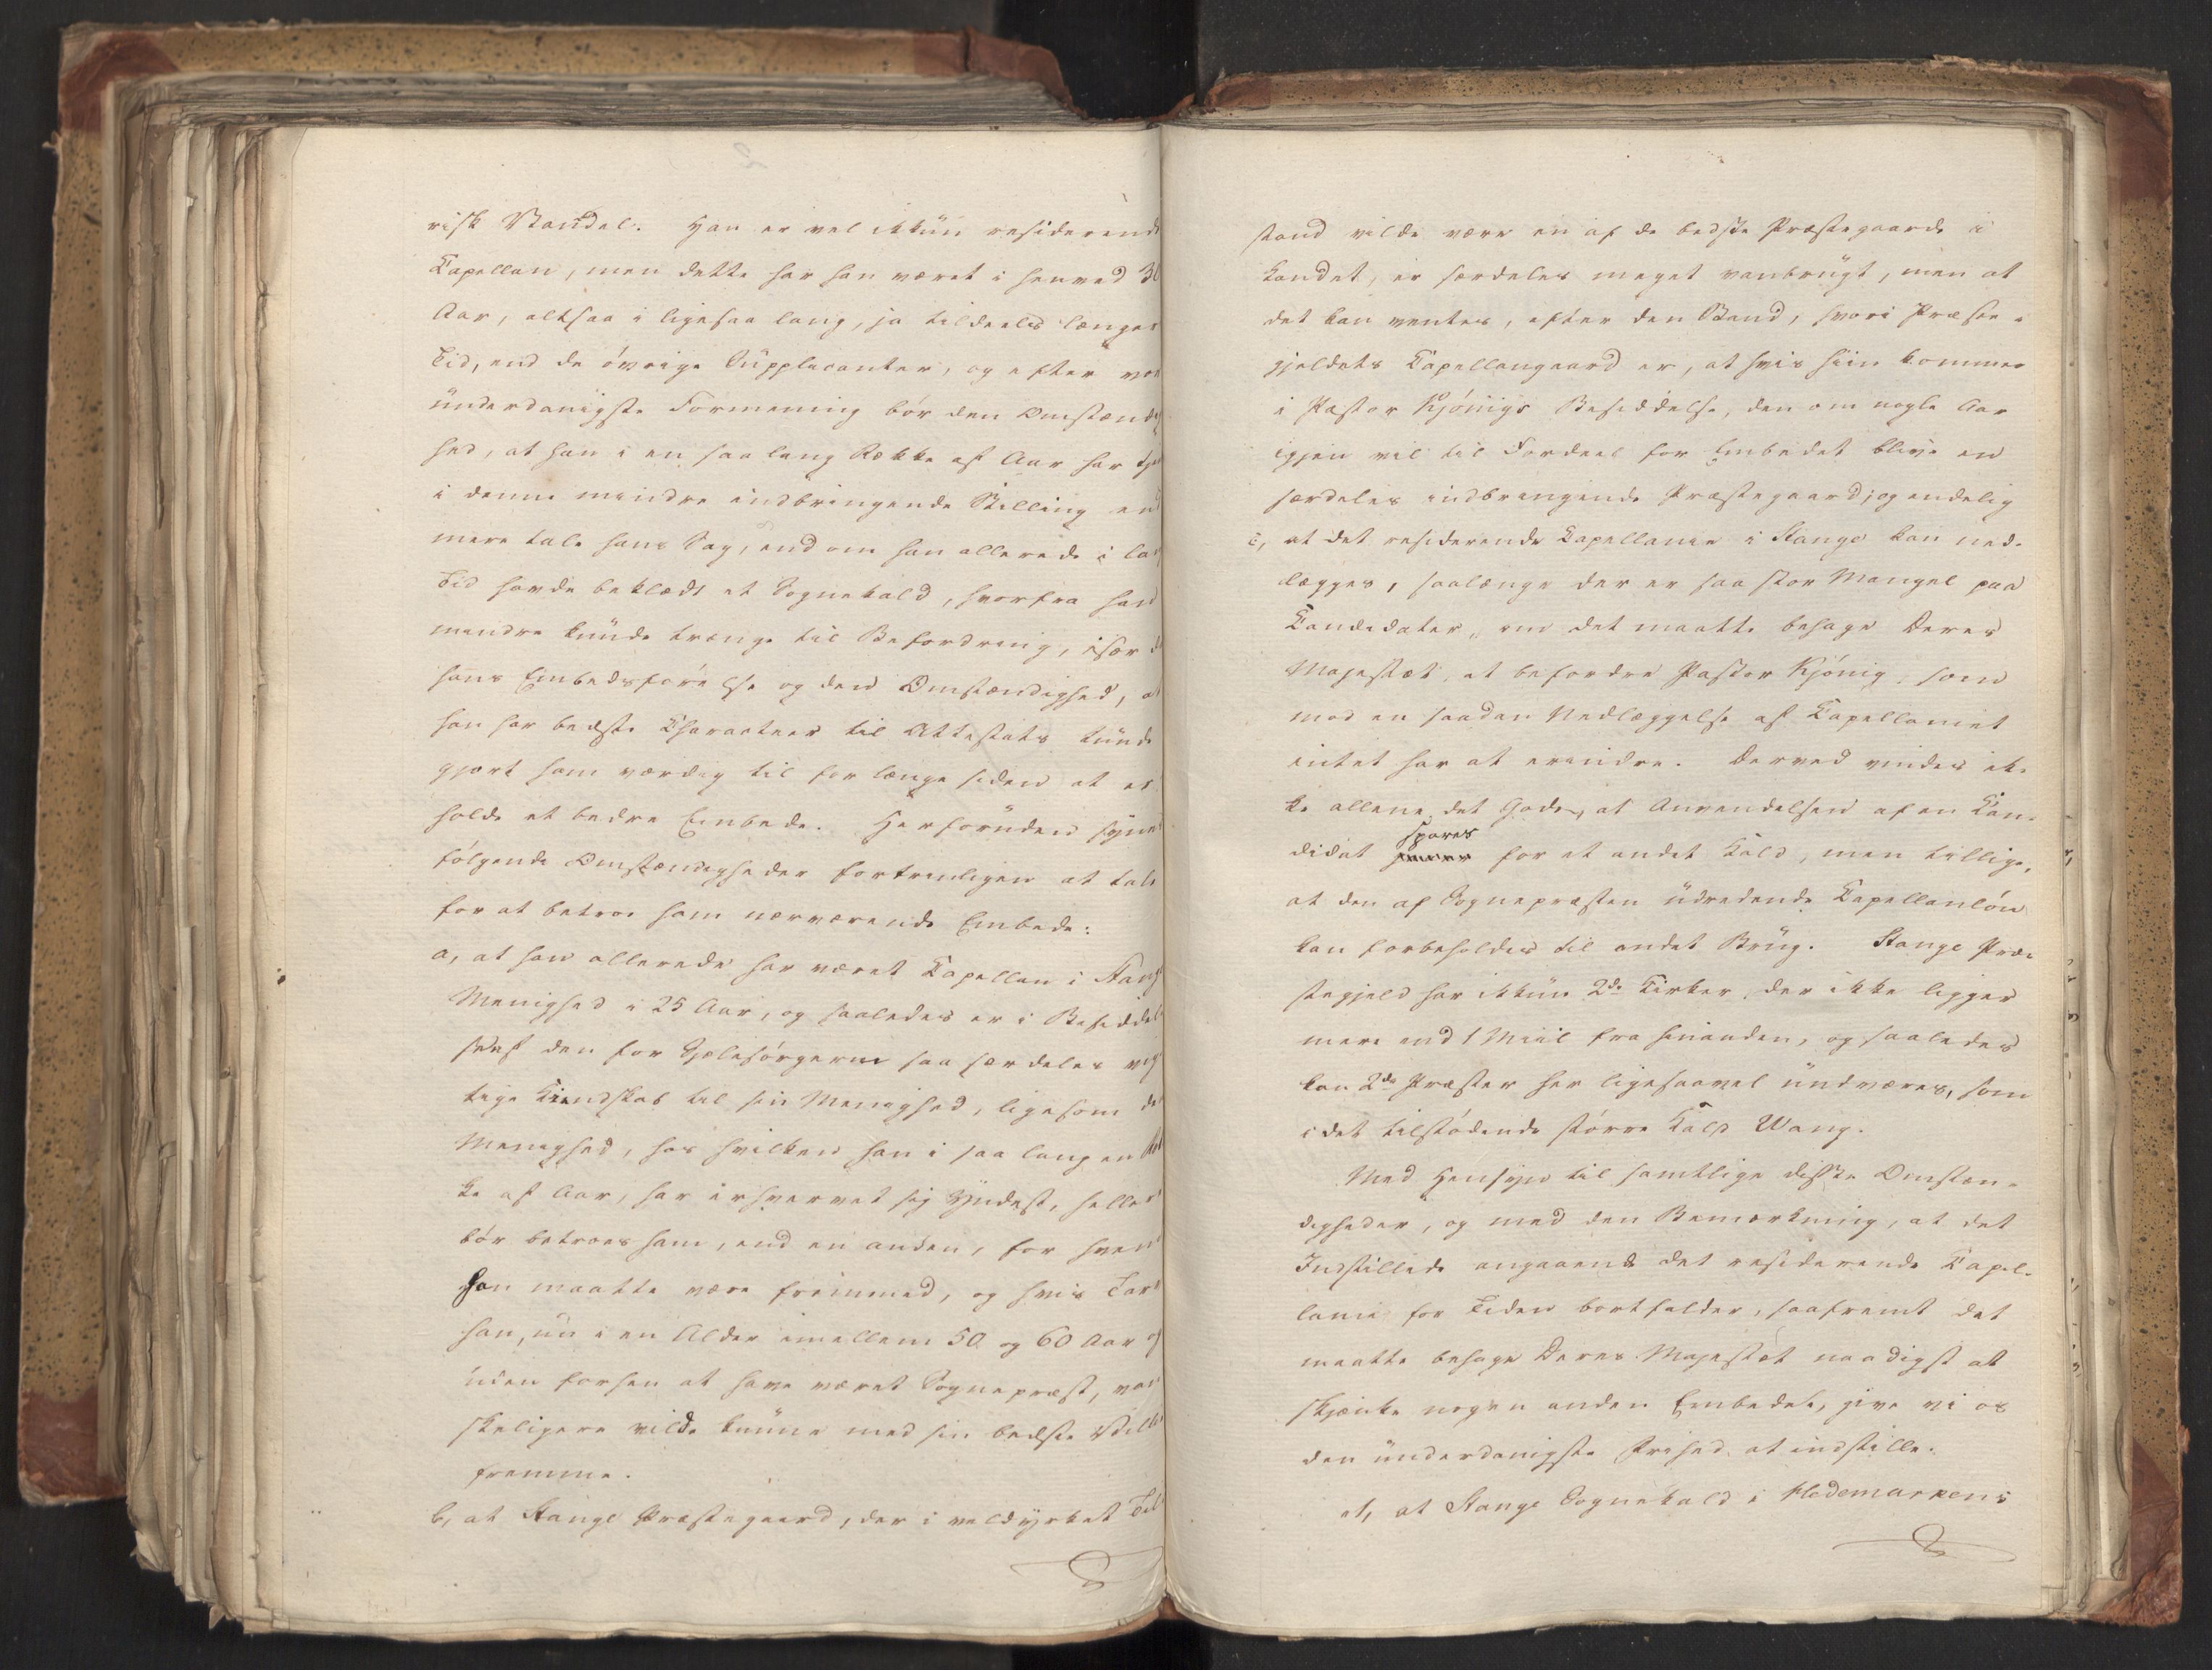 risk Vandel. Han er vel ikkun residerende
Capellan, men dette har han været i henved 30
Aar, altsaa i ligesaa lang, ja tildeels længer
Tid, end de øvrige Supplicanter, og efter vor
underdanigste Formening bør den Omstændig
hed, at han i en saa lang Række af Aar har
i denne mindre indbringende Stilling end
mere tale hans Sag, end om han allerede i lang
Tid havde beklædt et Sognekald, hvorfra han
mindre kunde trænge til Befordring, især da
hans Embedsførelse og den Omstændighed, at
han har bedste Charakteer til Attestats kunde
gjort ham værdig til for længe siden at er
holde et bedre Embede. Herforuden synes
følgende Omstændigheder fortrinligen at tale
for at betroe ham nærværende Embede:
a, at han allerede har været Capellan i Stange
Menighed i 25 Aar, og saaledes er i Besiddel
se af den for Sjelesørgerne saa særdeles vig
tige Kiendskab til sin Menighed, ligesom den
Menighed, hos hvilken han i saa lang en Ræk
ke af Aar, har erhvervet sig Yndest, heller
bør betroes ham, end en anden, for hvem
han maatte være fremmed, og hvis Tarv
han, nu i en Alder imellem 50 og 60 Aar og
uden forhen at have været Sognepræst, van
skeligere vilde kunne med sin bedste Villie
fremme.
b, at Stange Præstegaard, der i veldyrket Til
stand vilde være en af de bedste Præstegaarde i
Landet, er særdeles meget vanbrugt, men at
det kan ventes, efter den Stand, hvori Præste-
gjeldets Capellangaard er, at hvis hiin kommer
i Pastor Kjønigs Besiddelse, den om nogle Aar
igjen vil til Fordeel for Embedet blive en
særdeles indbringende Præstegaard; og endelig
c, at det residerende Capellanie i Stange kan ned-
lægges, saalænge der er saa stor Mangel paa
Candidater, om det maatte behage Deres
Majestæt, at befordre Pastor Kjønig, som
mod en saadan Nedlæggelse af Capellaniet
intet har at erindre. Derved vindes ik-
ke allene det Gode, at Anvendelsen af en Can-
spares
didat for et andet Kald, men tillige,
at den af Sognepræsten udredende Capellanløn
kan forbeholdes til andet Brug. Stange Præ-
stegjeld har ikkun 2de Kirker, der ikke ligger
mere end 1 Miil fra hinanden, og saaledes
kan 2de Præster her ligesaavel undværes, som
i det tilstødende større Kald Wang.
Med Hensyn til samtlige disse Omstæn-
digheder, og med den Bemærkning, at det
Indstillede angaaende det residerende Capel-
lanie for Tiden bortfalder, saafremt det
maatte behage Deres Majestæt naadigst at
skjænke nogen anden Embedet, give vi os
den underdanigste Frihed at indstille:
at, at Stange Sognekald i Hedemarkens